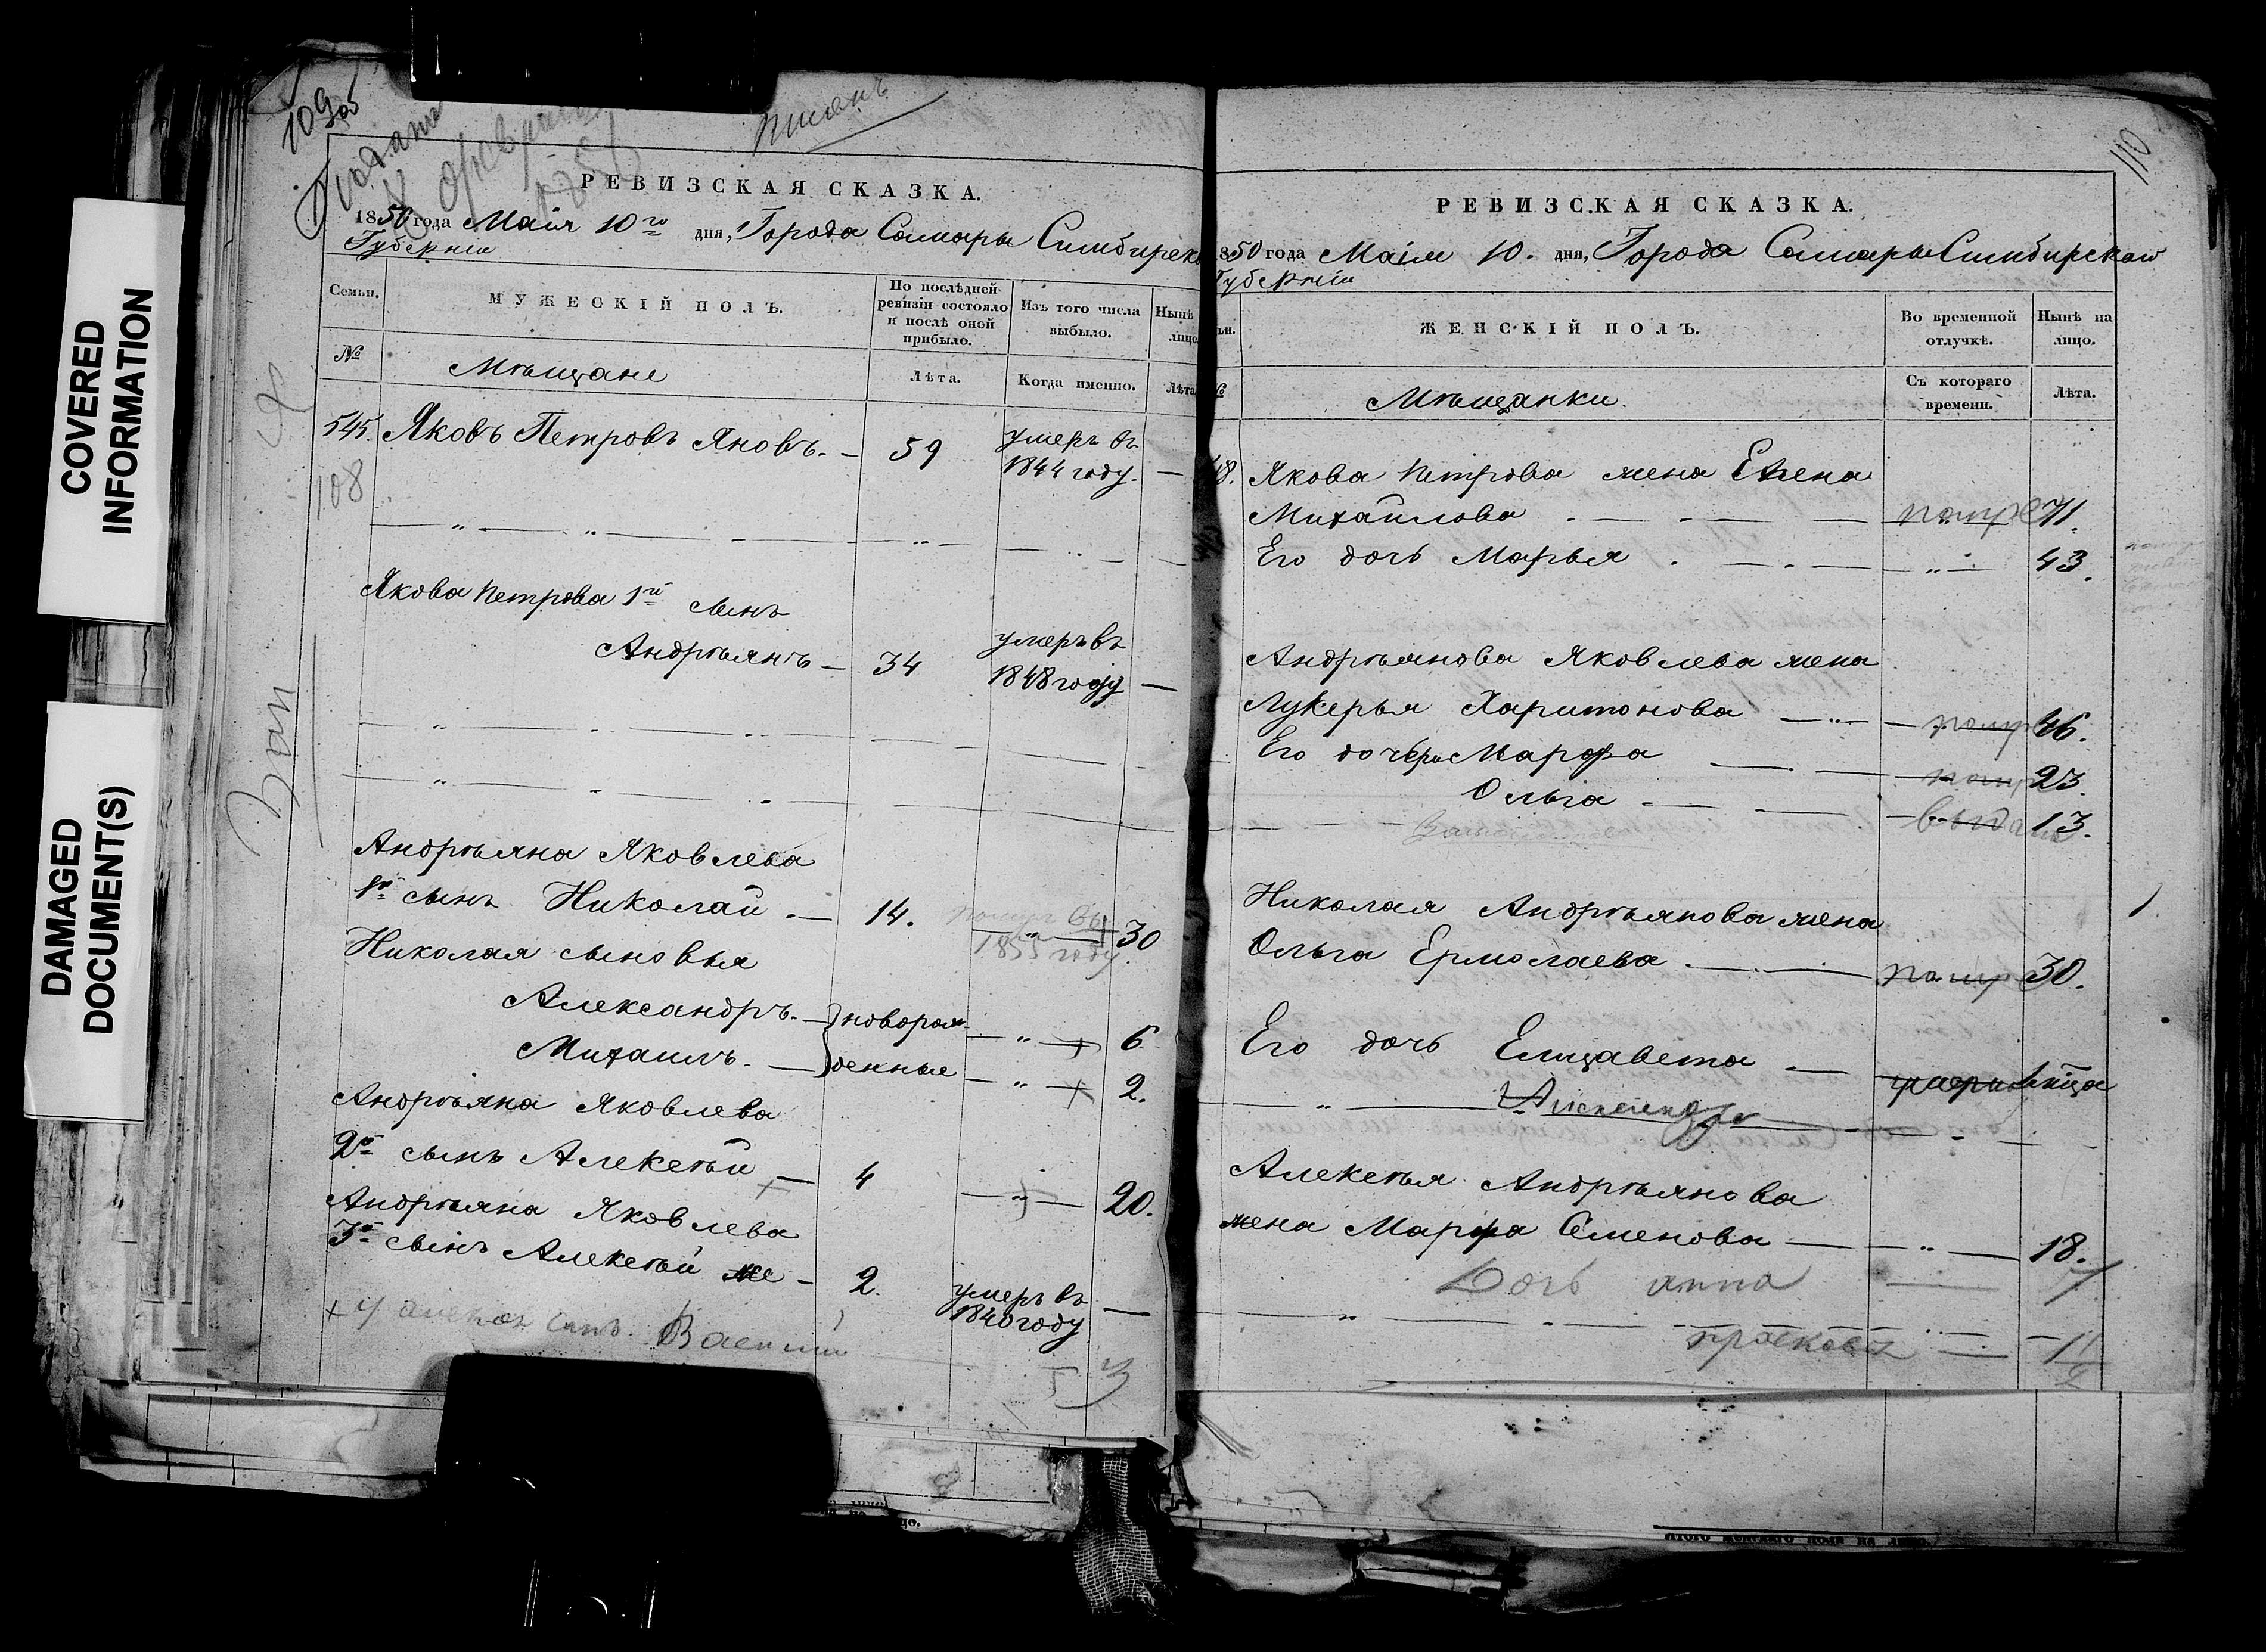 COVERED
INFORMATION
DAMAGED
DOCUMENT(S)
109об
Подана
РЕВИЗСКАЯ СКАЗКА.
1850 года Маія 10го дня, Города Самары Симбирск
Губерніи
Семьи.
МУЖЕСКІЙ ПОЛЪ.
По послѣдней
ревизіи состояло
и послѣ оной
прибыло.
Изъ того числа
выбыло.
Нынѣ
лицо
№
Мѣщане
Лѣта.
Когда именно.
Лѣта
545. Яковъ Петровъ Яновъ. — 59 умеръ въ
1844 году. —
108
Якова Петрова 1й сынъ
Андрѣянъ — 34 умеръ въ
1848 году —
Андрѣяна Яковлева
1й сынъ Николай — 14. 30
1855 году
Николая сыновья
Александръ. — новорож- 6
Михаилъ. — денные 2.
Андрѣяна Яковлева
2й сынъ Алексѣй — 4 — 20.
Андрѣяна Яковлева
3й сынъ Алексѣй же — 2. умеръ въ
1840 году —
Василій
3
110
РЕВИЗСКАЯ СКАЗКА.
850 года Маія 10. дня, Города Самары Симбирской
Губерніи
ьи.
ЖЕНСКІЙ ПОЛЪ.
Во временной
отлучкѣ.
Нынѣ на
лицо.
№
Мѣщанки.
Съ котораго
времени.
Лѣта.
Якова Петрова жена Елена
Михайлова — 71.
Его дочь Марья — 43.
Андрѣянова Яковлева жена
Лукерья Харитонова — 46.
Его дочери Марфа — 23.
Ольга — 13.
Николая Андрѣянова жена
Ольга Ермолаева — 30.
Его дочь Елизавета —
Алексѣя Андрѣянова
жена Марфа Семенова — 18.
Дочь анна 7